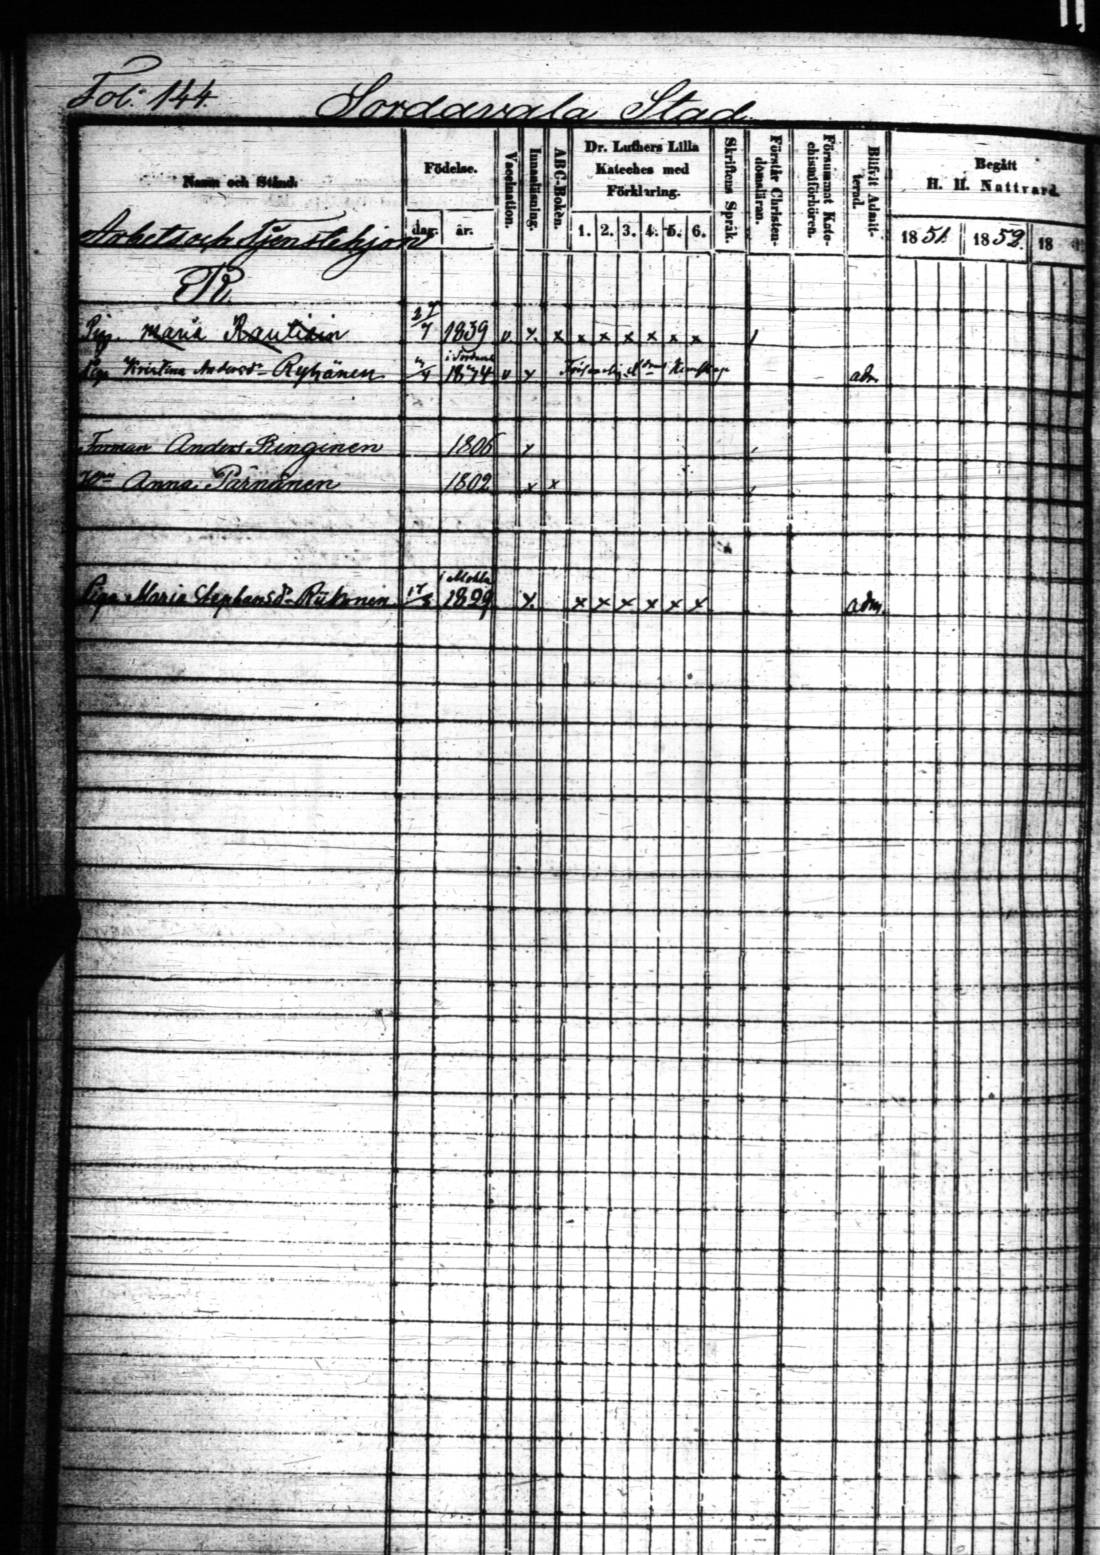 Fol. 144
Sordavala Stad
Namn och Stånd.
Födelse.
dag.
år.
Vaccination.
Innanläsning.
ABC-Boken.
Dr. Luthers Lilla
Kateches med
Förklaring.
1. 2. 3. 4. 5. 6.
Skriftens Språk.
Förstår Christen-
domsläran.
Försummat Kate-
chismiförhören.
Blifvit Admit-
terad.
Begått
H. H. Nattvard.
1851.
1852.
18
Arbets och tjenstehjon
R.
Pig. Maria Rautiain 27/7 1839 v. x. x x x x x x x /
Pig Kristina Andersd:r Ryhänen 1834 v x adm
Forman Anders Ringinen 1806 x
Anna Pärnänen 1802 x x
i Mohla
Piga Maria Stephansd:r Riikonen 17/8 1829 x. x x x x x x adm.